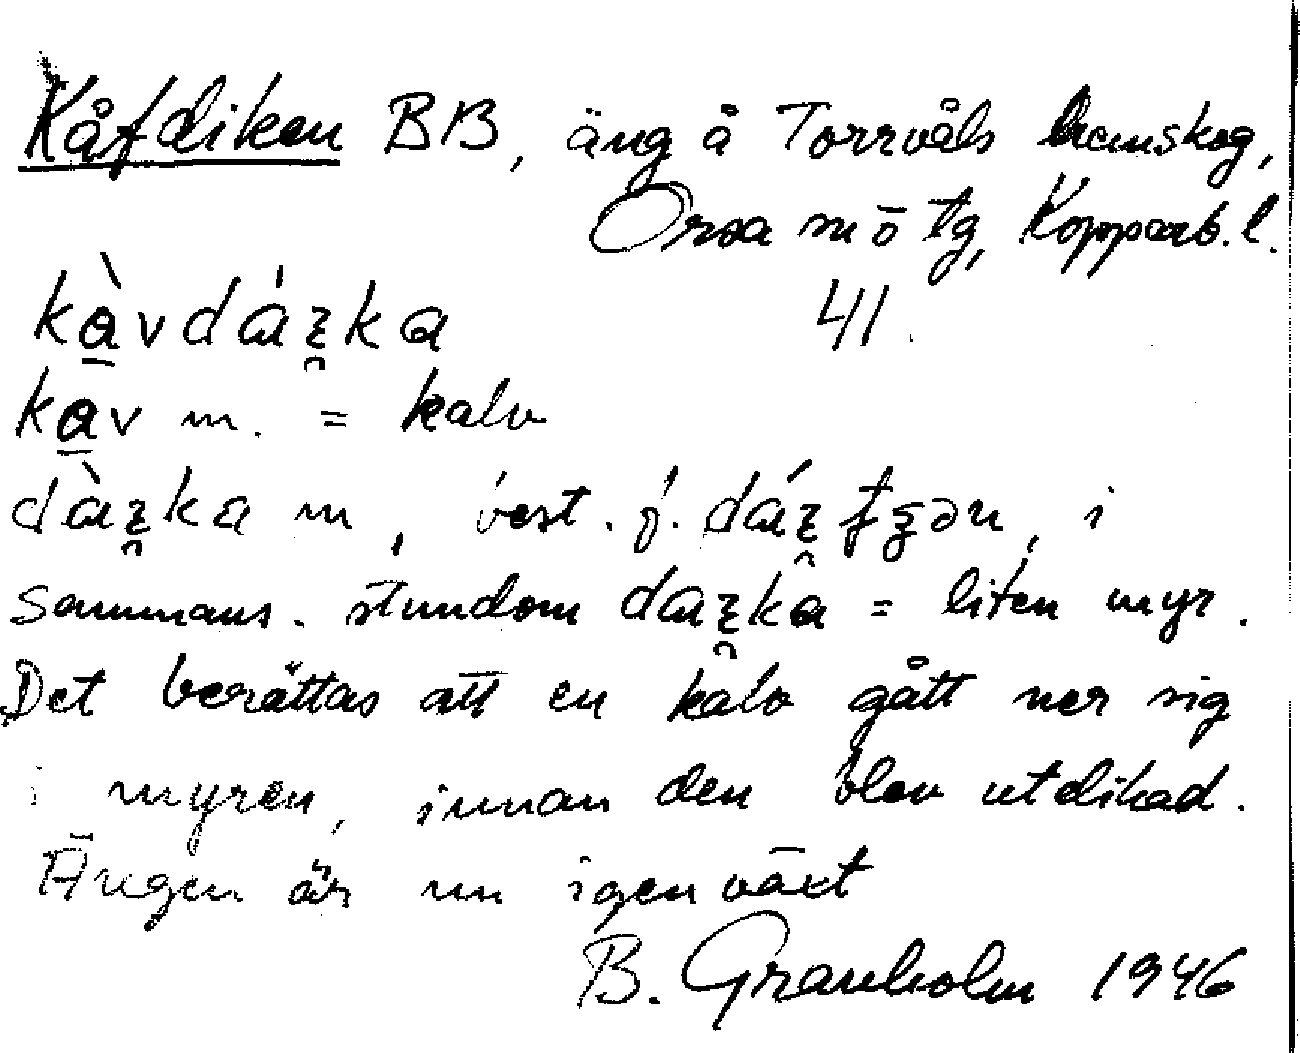 Kåfdiken BB, äng å Torrvåls hemskog,
Orsa sn o tg, Kopparb. l.
41.
kav m. = kalv
m, best. f. i
sammans. stundom = liten myr.
Det berättas att en kalv gått ner sig
i myren, innan den blev utdikad.
Ängen är nu igenväxt
B. Granholm 1946